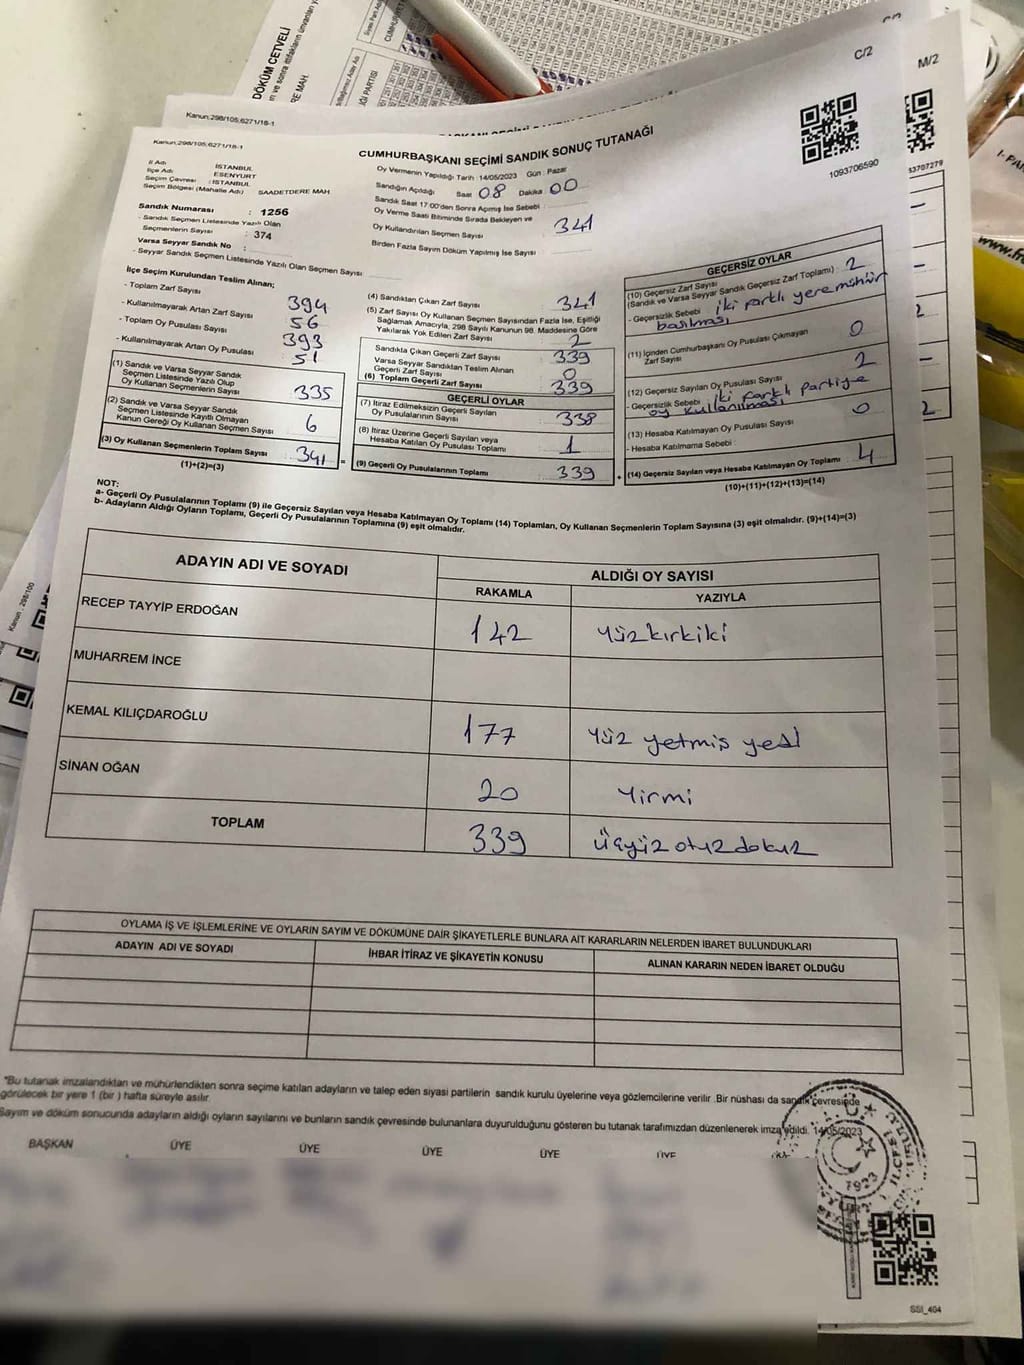 DÖKÜM CETVELİ
RE MAH.
C/2
M/2
Kanun:298/105;6271/18-1
Kanun;298/105;6271/18-1
CUMHURBAŞKANI SEÇİMİ SANDIK SONUÇ TUTANAĞI
1093706590
53707279
İl Adı : İSTANBUL
İlçe Adı : ESENYURT
Seçim Çevresi : İSTANBUL
Seçim Bölgesi (Mahalle Adı) : SAADETDERE MAH.
Oy Vermenin Yapıldığı Tarih : 14/05/2023 Gün : Pazar
Sandığın Açıldığı Saat 08 Dakika 00
Sandık Saat 17:00'den Sonra Açılmış İse Sebebi :
Oy Verme Saati Bitiminde Sırada Bekleyen ve
Oy Kullandırılan Seçmen Sayısı : 341
Birden Fazla Sayım Döküm Yapılmış İse Sayısı :
Sandık Numarası : 1256
- Sandık Seçmen Listesinde Yazılı Olan
Seçmenlerin Sayısı : 374
Varsa Seyyar Sandık No :
- Seyyar Sandık Seçmen Listesinde Yazılı Olan Seçmen Sayısı
İlçe Seçim Kurulundan Teslim Alınan;
- Toplam Zarf Sayısı 394
- Kullanılmayarak Artan Zarf Sayısı 56
- Toplam Oy Pusulası Sayısı 393
- Kullanılmayarak Artan Oy Pusulası 51
(1) Sandık ve Varsa Seyyar Sandık
Seçmen Listesinde Yazılı Olup
Oy Kullanan Seçmenlerin Sayısı 335
(2) Sandık ve Varsa Seyyar Sandık
Seçmen Listesinde Kayıtlı Olmayan
Kanun Gereği Oy Kullanan Seçmen Sayısı 6
(3) Oy Kullanan Seçmenlerin Toplam Sayısı 341
(1)+(2)=(3)
(4) Sandıktan Çıkan Zarf Sayısı 341
(5) Zarf Sayısı Oy Kullanan Seçmen Sayısından Fazla İse, Eşitliği
Sağlamak Amacıyla, 298 Sayılı Kanunun 98. Maddesine Göre
Yakılarak Yok Edilen Zarf Sayısı 2
Sandıkta Çıkan Geçerli Zarf Sayısı 339
Varsa Seyyar Sandıktan Teslim Alınan
Geçerli Zarf Sayısı 0
(6) Toplam Geçerli Zarf Sayısı 339
GEÇERLİ OYLAR
(7) İtiraz Edilmeksizin Geçerli Sayılan
Oy Pusulalarının Sayısı 338
(8) İtiraz Üzerine Geçerli Sayılan veya
Hesaba Katılan Oy Pusulası Toplamı 1
(9) Geçerli Oy Pusulalarının Toplamı 339
GEÇERSİZ OYLAR
(10) Geçersiz Zarf Sayısı
(Sandık ve Varsa Seyyar Sandık Geçersiz Zarf Toplamı) : 2
- Geçersizlik Sebebi : iki farklı yere mühür
basılması
(11) İçinden Cumhurbaşkanı Oy Pusulası Çıkmayan
Zarf Sayısı 0
(12) Geçersiz Sayılan Oy Pusulası Sayısı 2
- Geçersizlik Sebebi : iki farklı partiye
oy kullanılması
(13) Hesaba Katılmayan Oy Pusulası Sayısı 0
- Hesaba Katılmama Sebebi :
(14) Geçersiz Sayılan veya Hesaba Katılmayan Oy Toplamı 4
(10)+(11)+(12)+(13)=(14)
NOT:
a- Geçerli Oy Pusulalarının Toplamı (9) ile Geçersiz Sayılan veya Hesaba Katılmayan Oy Toplamı (14) Toplamları, Oy Kullanan Seçmenlerin Toplam Sayısına (3) eşit olmalıdır. (9)+(14)=(3)
b- Adayların Aldığı Oyların Toplamı, Geçerli Oy Pusulalarının Toplamına (9) eşit olmalıdır.
ADAYIN ADI VE SOYADI ALDIĞI OY SAYISI
RAKAMLA YAZIYLA
RECEP TAYYİP ERDOĞAN 142 Yüzkırkiki
MUHARREM İNCE
KEMAL KILIÇDAROĞLU 177 Yüz yetmiş yedi
SİNAN OĞAN 20 Yirmi
TOPLAM 339 Üçyüz otuz dokuz
OYLAMA İŞ VE İŞLEMLERİNE VE OYLARIN SAYIM VE DÖKÜMÜNE DAİR ŞİKAYETLERLE BUNLARA AİT KARARLARIN NELERDEN İBARET BULUNDUKLARI
ADAYIN ADI VE SOYADI İHBAR İTİRAZ VE ŞİKAYETİN KONUSU ALINAN KARARIN NEDEN İBARET OLDUĞU
"Bu tutanak imzalandıktan ve mühürlendikten sonra seçime katılan adayların ve talep eden siyasi partilerin sandık kurulu üyelerine veya gözlemcilerine verilir .Bir nüshası da sandık çevresinde
görülecek bir yere 1 (bir ) hafta süreyle asılır.
Sayım ve döküm sonucunda adayların aldığı oyların sayılarını ve bunların sandık çevresinde bulunanlara duyurulduğunu gösteren bu tutanak tarafımızdan düzenlenerek imza edildi. 14/05/2023
BAŞKAN ÜYE ÜYE ÜYE ÜYE ÜYE
1923
SSI_404